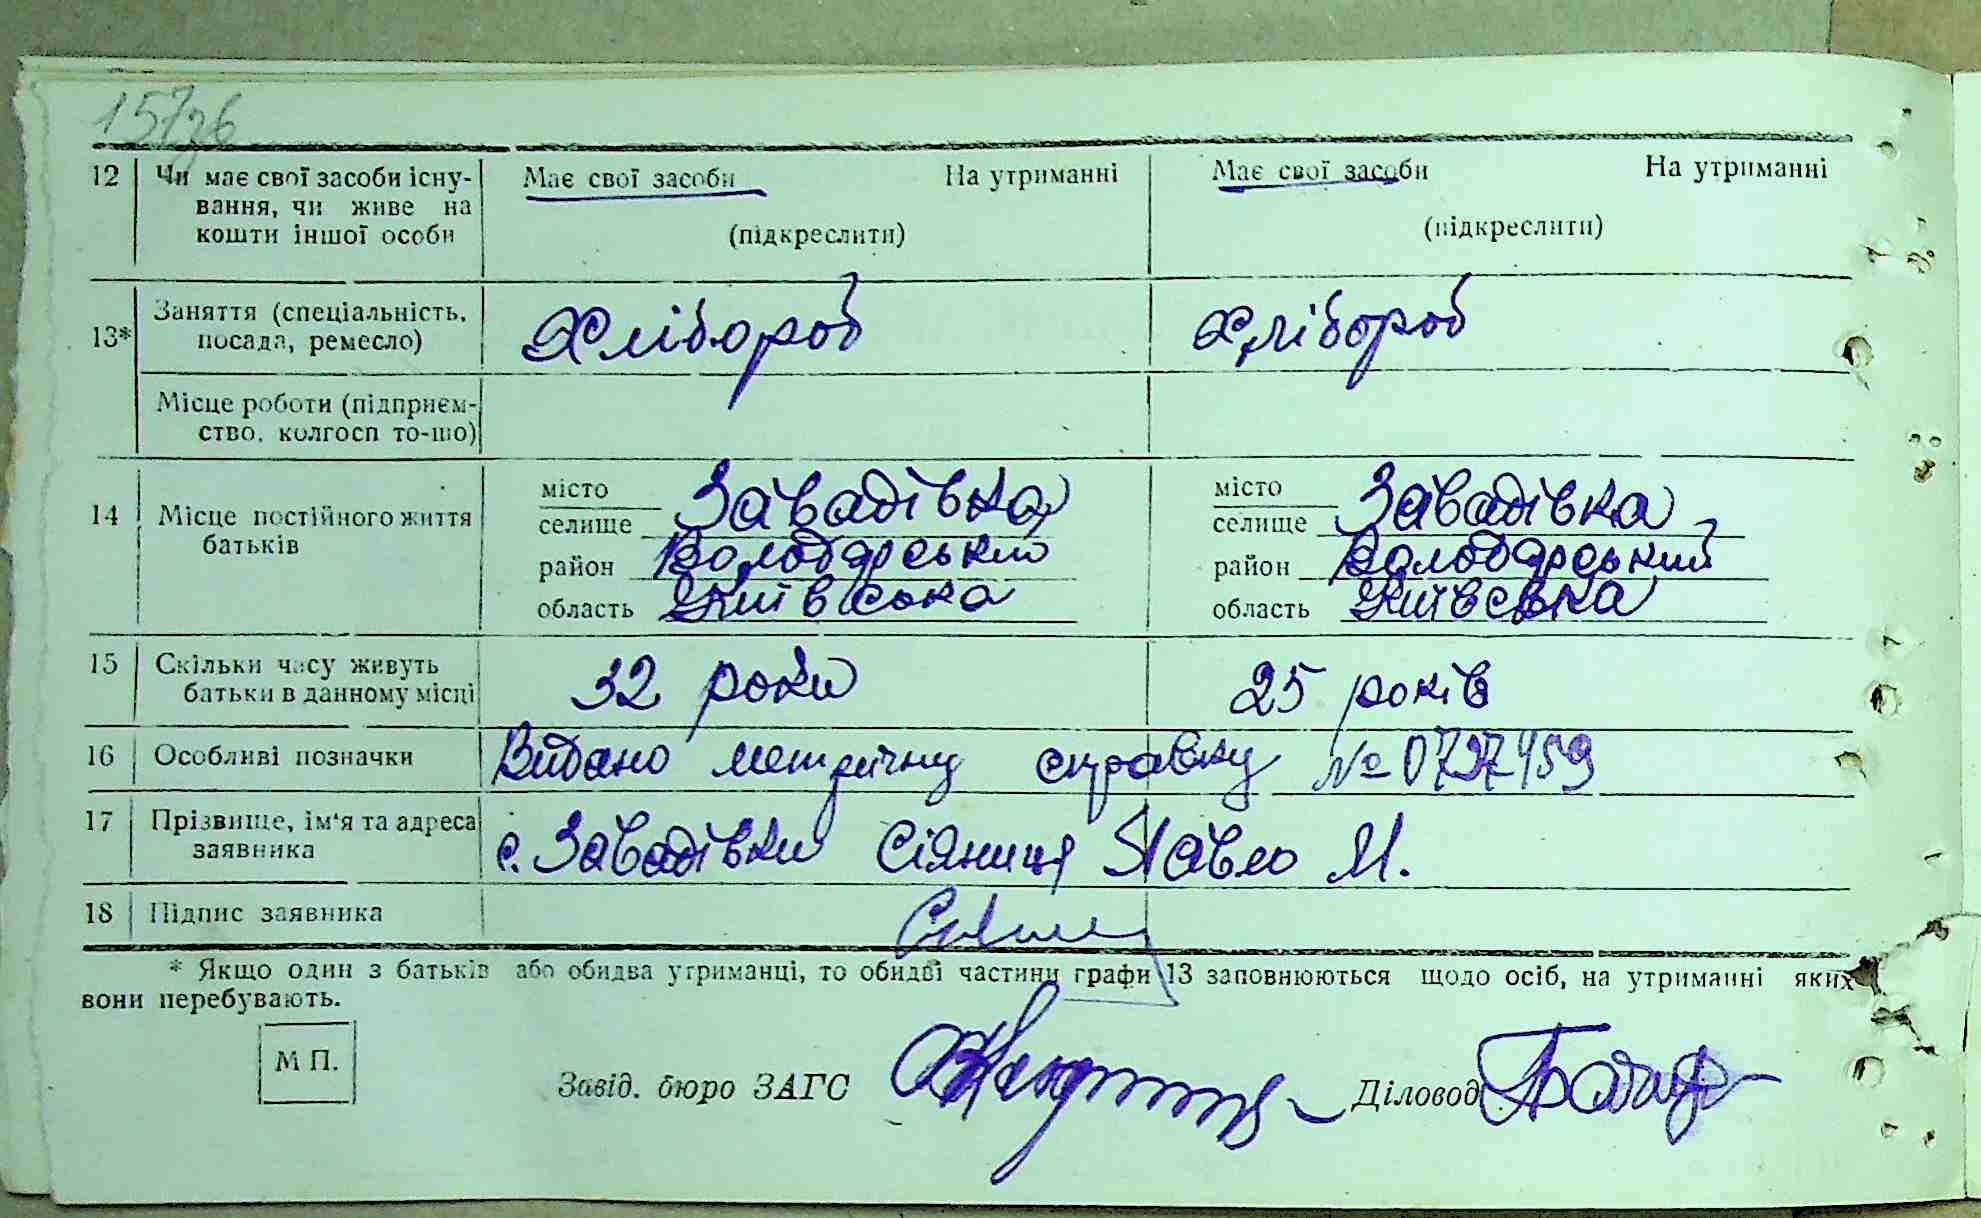 157зв
12 Чи має свої засоби існу-вання, чи живе на кошти іншої особи Має свої засоби На утриманні (підкреслити) Має свої засоби На утриманні (підкреслити)
13* Заняття (спеціальність, посада, ремесло) Хлібороб Хлібороб
Місце роботи (підприєм-ство, колгосп то-що)
14 Місце постійного життя батьків
місто селище Завадівка місто селище Завадівка
район Володарський район Володарський
область Київська область Київська
15 Скільки часу живуть батьки в данному місці 32 роки 25 років
16 Особливі позначки Видано метричну справку № 0797459
17 Прізвище, ім'я та адреса заявника с. Завадівки Сіяниця Павло М.
18 Підпис заявника
* Якщо один з батьків або обидва утриманці, то обидві частини графи 13 заповнюються щодо осіб, на утриманні яких
вони перебувають.
М П.
Завід. бюро ЗАГС Діловод